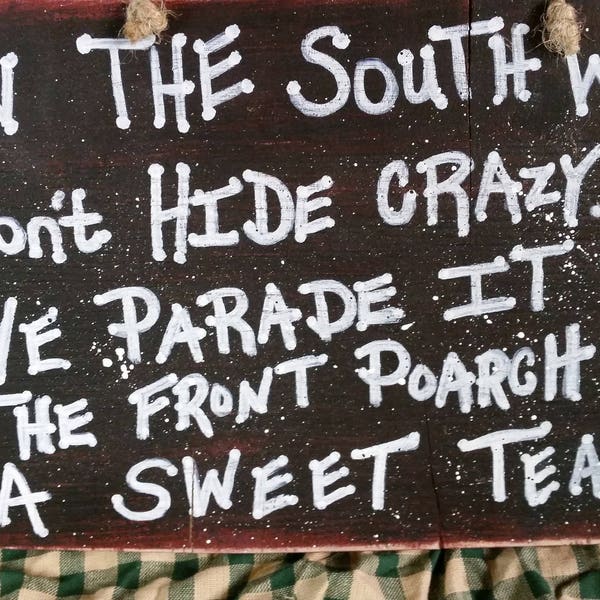 N THE SOUTH W
on't HIDE CRAZY.
WE PARADE IT
THE FRONT POARCH
A SWEET TEA